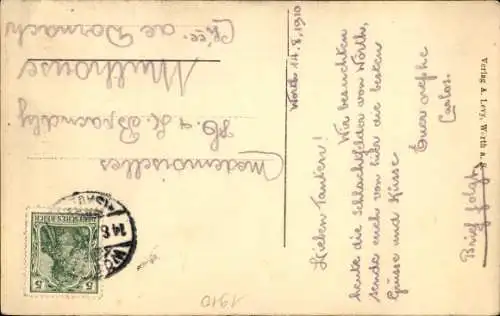 Wörth 14.8.1910
Lieben Tanten!
Wir besuchten
heute die Schlachtfelder von Wörth,
sende euch von hier die besten
Grüsse und Küsse
Euer neffe
Carlos.
Brief folgt
Verlag A. Levy, Wörth a. S.
Mesdemoiselles
M. & H. Braendly
Mulhouse
de Dornach
DEUTSCHES REICH
5 5
14.8
1910